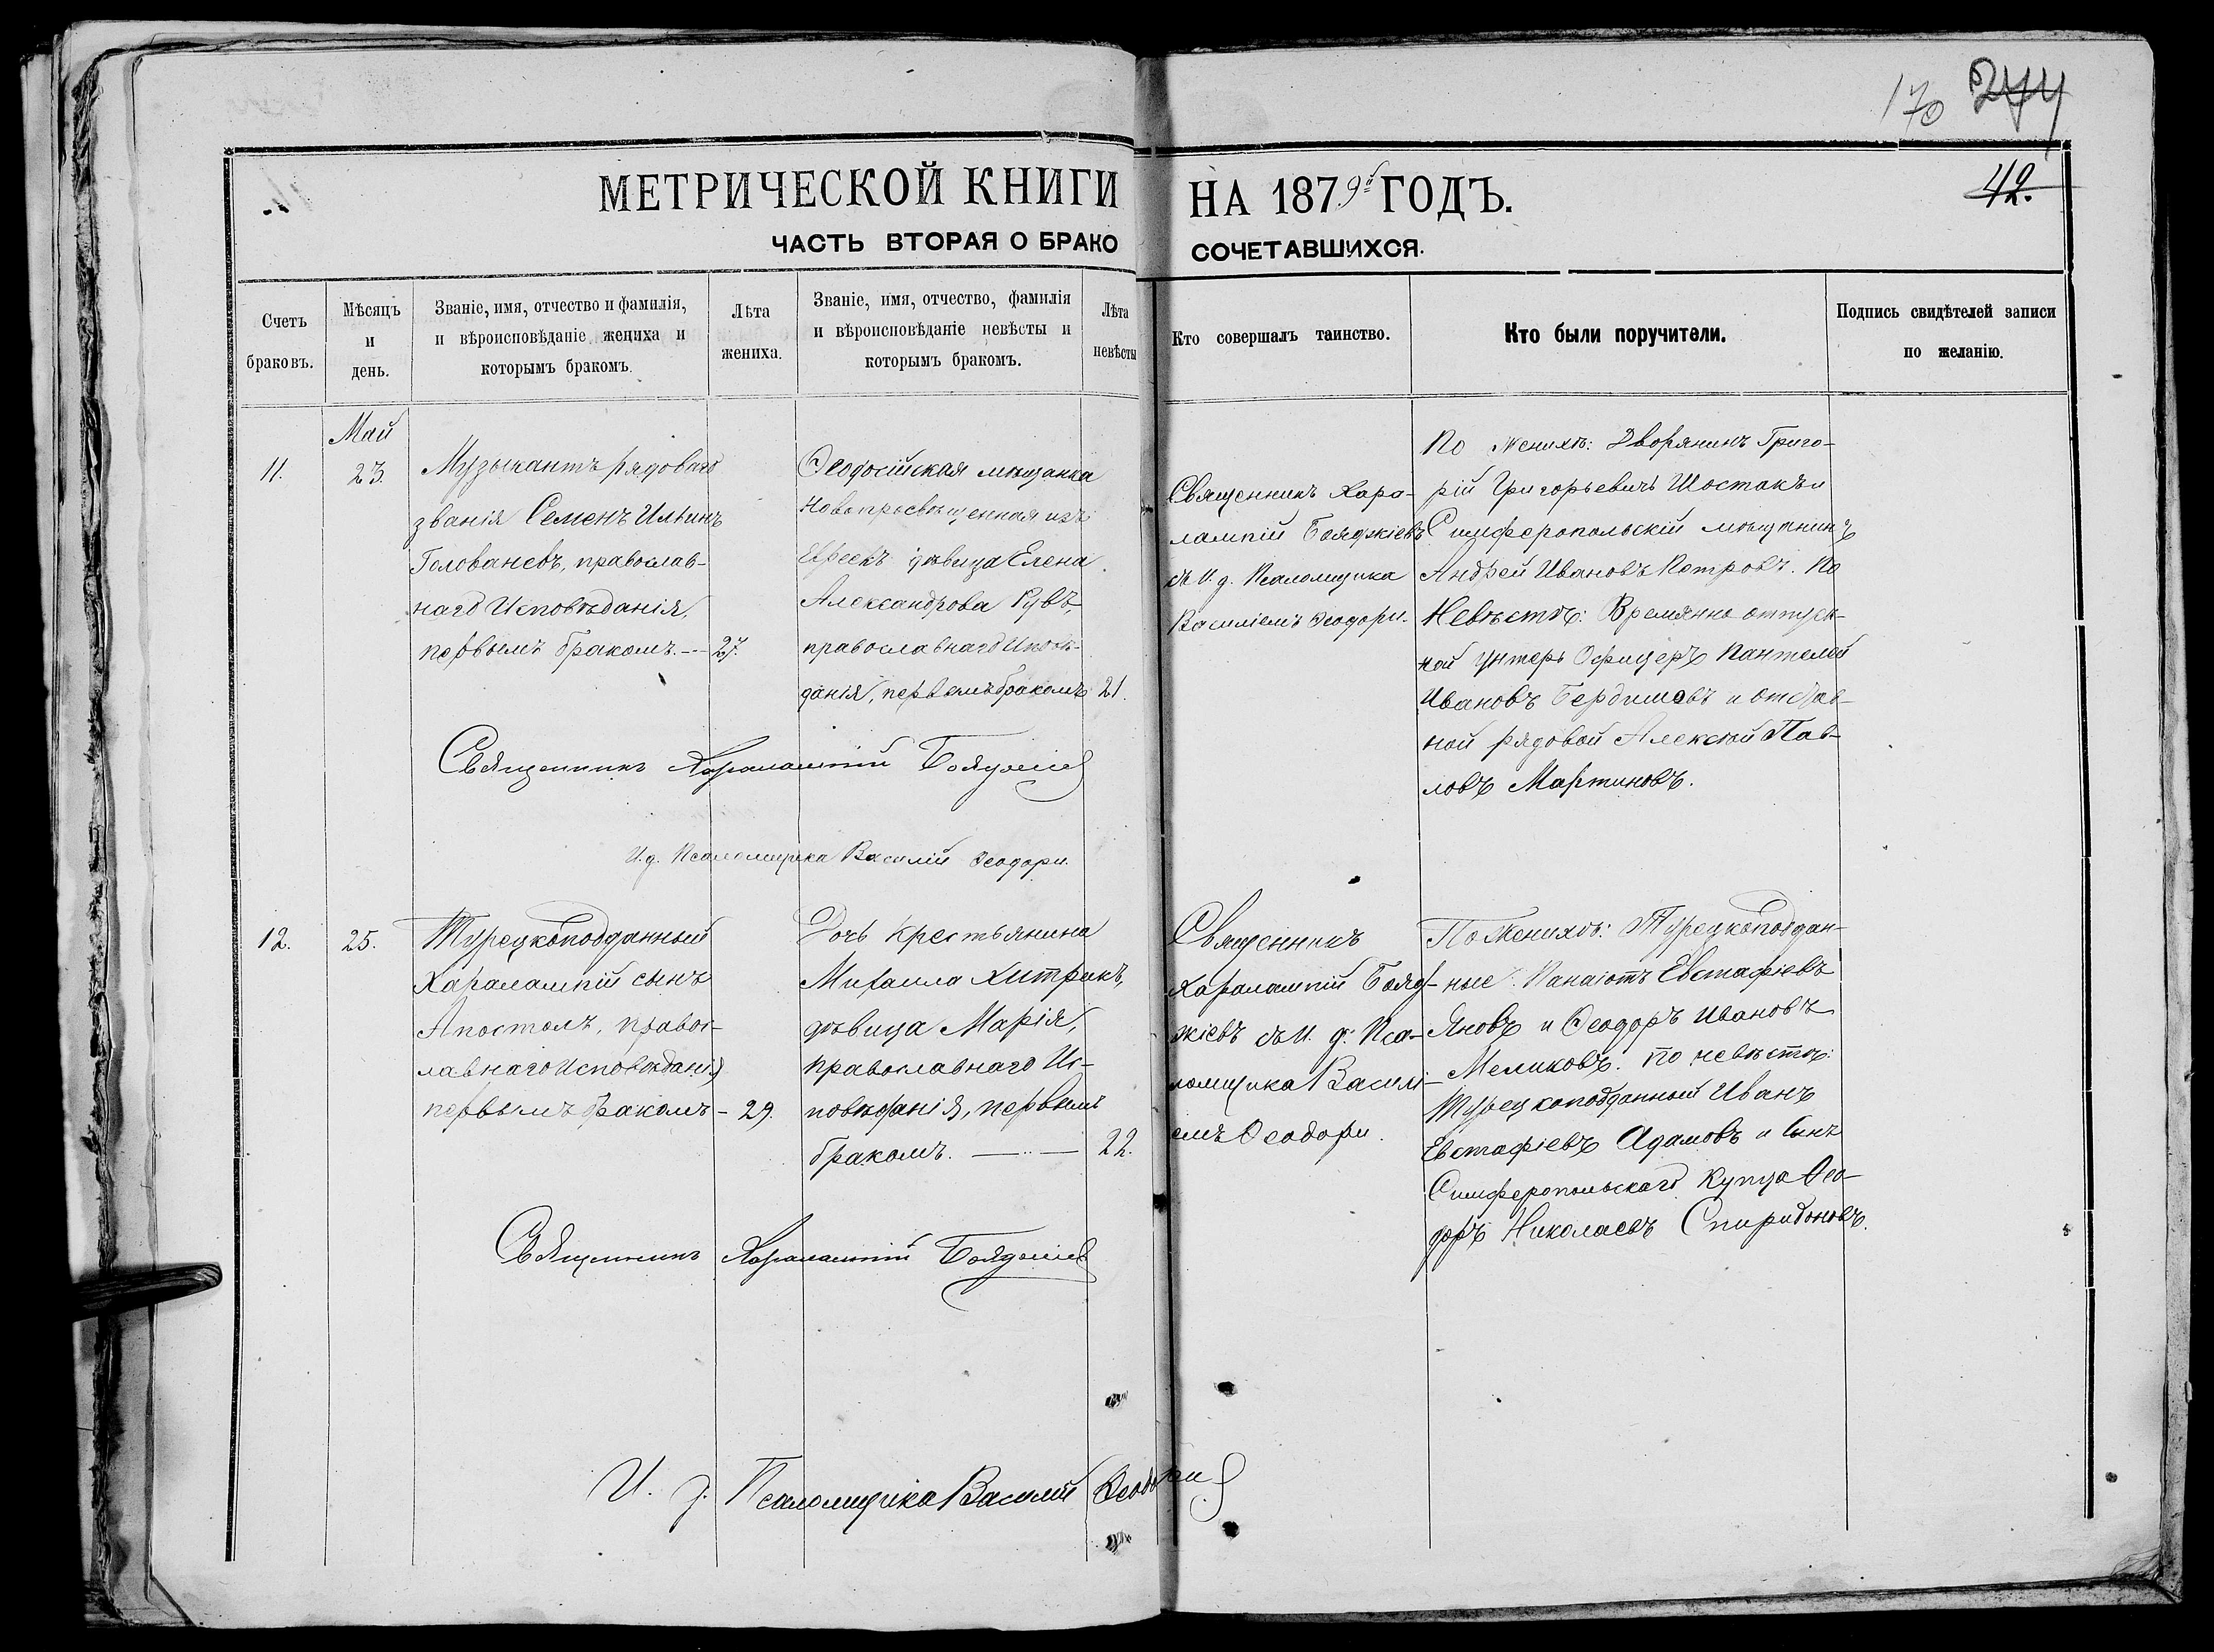 170 244
МЕТРИЧЕСКОЙ КНИГИ НА 1879й ГОДЪ.
42.
ЧАСТЬ ВТОРАЯ О БРАКОСОЧЕТАВШИХСЯ.
Счетъ
браковъ.
Мѣсяцъ
и
день.
Званіе, имя, отчество и фамилія,
и вѣроисповѣданіе жениха и
которымъ бракомъ.
Лѣта
жениха.
Званіе, имя, отчество, фамилія
и вѣроисповѣданіе невѣсты и
которымъ бракомъ.
Лѣта
невѣсты
Кто совершалъ таинство.
Кто были поручители.
Подпись свидѣтелей записи
по желанію.
11.
Май
23.
Музыкантъ рядоваго
званія Семенъ Ильинъ
Голованевъ, православ-
наго Исповѣданія,
первымъ бракомъ. --
27.
Ѳеодосійская мѣщанка
Новопросвѣщенная изъ
Евреевъ дѣвица Елена
Александрова Рувъ,
православнаго Исповѣ-
данія, первымъ бракомъ
21.
Священникъ Хара-
лампій Бояджіевъ
съ И. д. Псаломщика
Василіемъ Ѳеодори.
По Женихѣ: Дворянинъ Григо-
рій Григорьевичъ Шостакъ и
Симферопольскій мѣщанинъ
Андрей Ивановъ Петровъ. По
Невѣстѣ: Времянно отпуск-
ной унтеръ Офицеръ Пантелей
Ивановъ Бердишовъ и отстав-
ной рядовой Алексѣй Пав-
ловъ Мартиновъ.
Священникъ Харалампій Бояджіев
И. д. Псаломщика Василій Ѳеодори.
12.
25.
Турецкоподданный
Харалампій сынъ
Апостолъ, правос-
лавнаго Исповѣданія
первымъ бракомъ -
29.
Дочь крестьянина
Михаила Хитрикъ,
дѣвица Марія,
православнаго Ис-
повѣданія, первымъ
бракомъ. —..—
22.
Священникъ
Харалампій Бояд-
жіевъ съ И. д. Пса-
ломщика Василі-
емъ Ѳеодори.
По Женихѣ: Турецкоподдан-
ные: Панаіотъ Евстафіевъ
Яновъ и Ѳеодоръ Ивановъ
Меликовъ. По невѣстѣ:
Турецкоподданный Иванъ
Евстафіевъ Адамовъ и Сынъ
Симферопольскаго Купца Ѳео-
доръ Николаевъ Спиридоновъ.
Священникъ Харалампій Бояджіев
И. д. Псаломщика Василій Ѳеодори